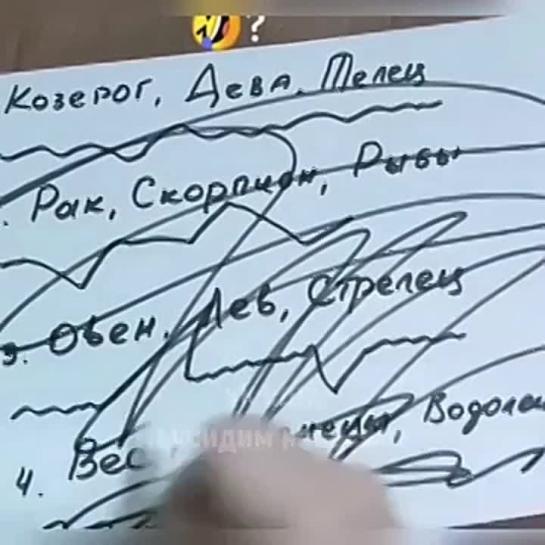 ?
Козерог, Дева, Телец
Рак, Скорпион, Рыбы
3. Овен, Лев, Стрелец
4. Водолей